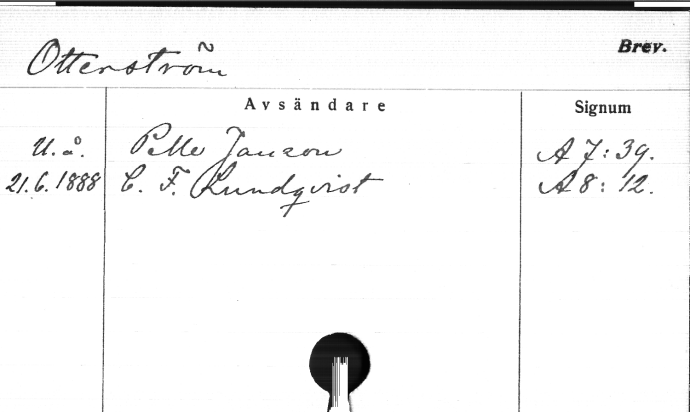 Brev.
Ottenström
Avsändare Signum
U. å. Pelle Janzon A 7:39.
21.6.1888 C. F. Lundqvist A 8:12.